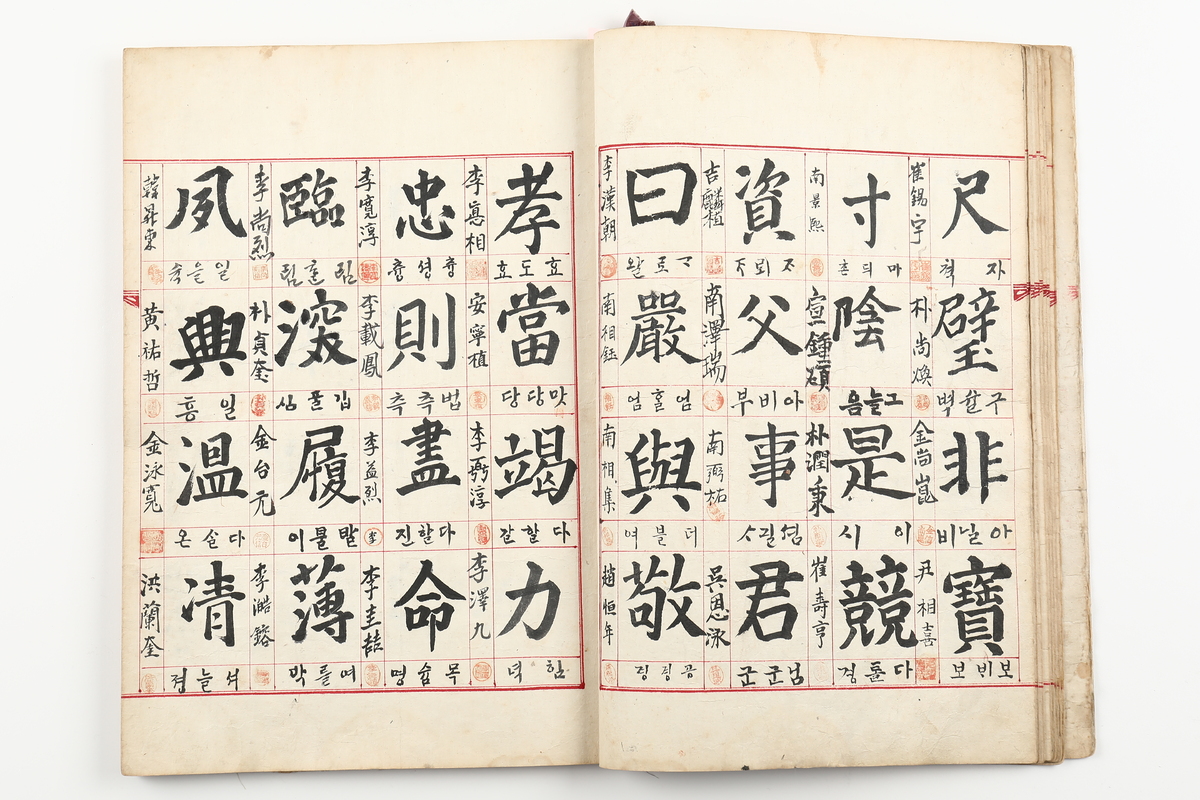 尺
자 척
崔錫宇
璧
구슬 벽
朴尚煥
非
아닐 비
金尚崑
寶
보비 보
尹相喜
寸
마듸 촌
南景熙
陰
그늘 음
宣鍾碩
是
이 시
朴潤秉
競
다톨 경
崔壽亨
資
자뢰 자
吉麟植
父
아비 부
南澤瑞
事
셤길 ᄉ
南弼祐
君
님군 군
吳恩泳
曰
ᄀ로 왈
李漢朝
嚴
엄홀 엄
南相鈺
與
더블 여
南相集
敬
공경 경
趙恒年
孝
효도 효
李寯相
當
맛당 당
安寧植
竭
다할 갈
李弼淳
力
힘 력
李澤九
忠
츙셩 츙
李寬淳
則
법측 측
李載鳳
盡
다할 진
李益烈
命
목숨 명
李圭喆
臨
림 림
李尚烈
深
깁풀 심
朴貞奎
履
발블 이
金台亢
薄
여를 박
李澔鎔
夙
일을 슉
韓昇東
興
일 흥
黃祐哲
溫
다솔 온
金泳寬
凊
셔늘 졍
洪蘭奎